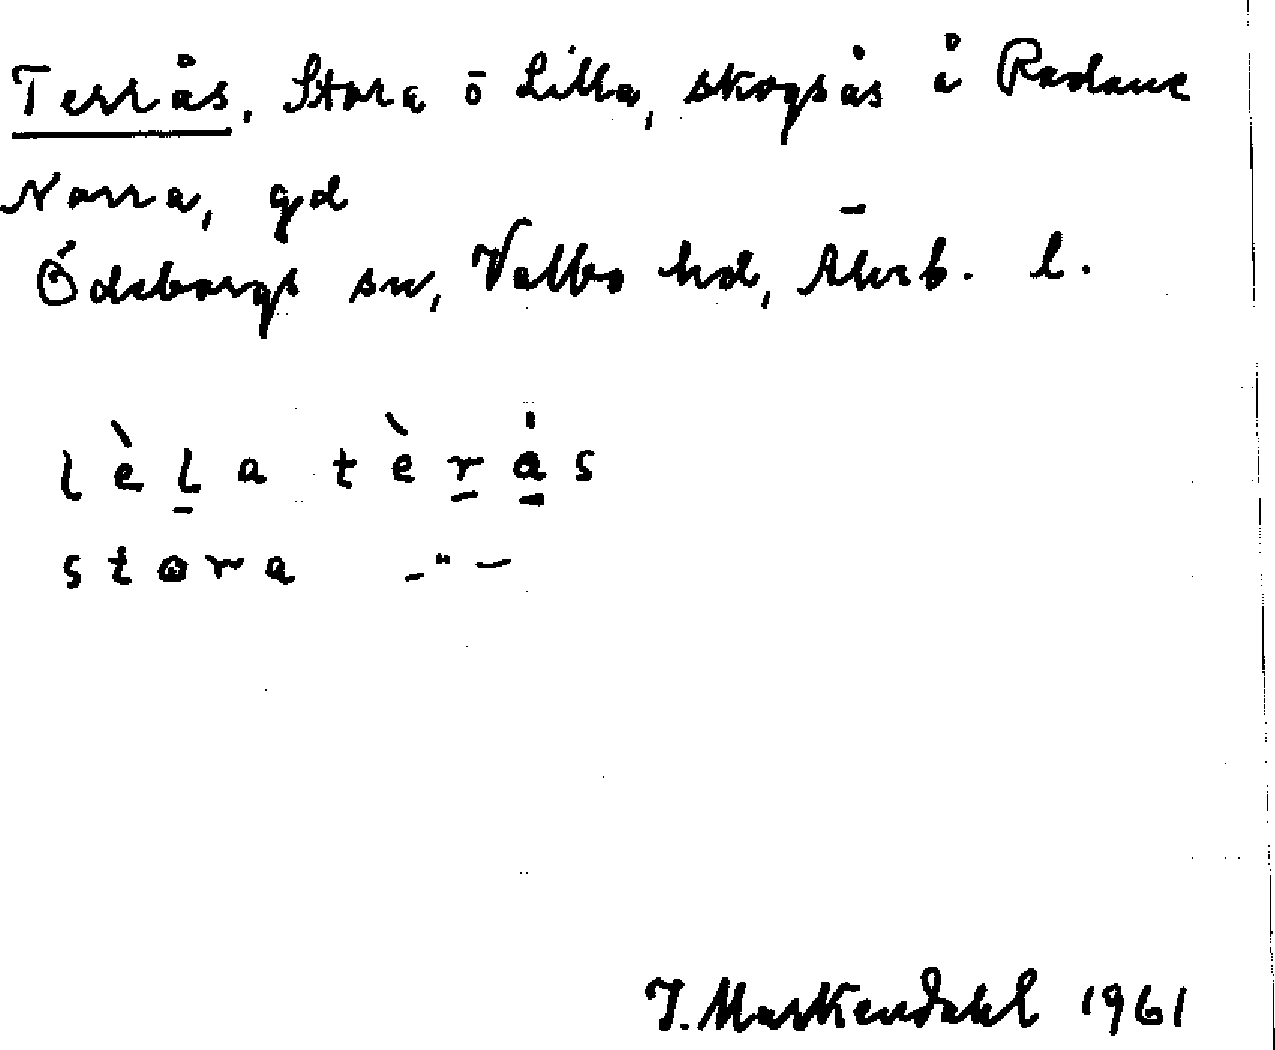 Terrås, Stora o Lilla, skogsås å Radane
Norra, gd
Ödeborgs sn, Valbo hd, Älvsb. l.
lèla tèrås
stora -"-
1961